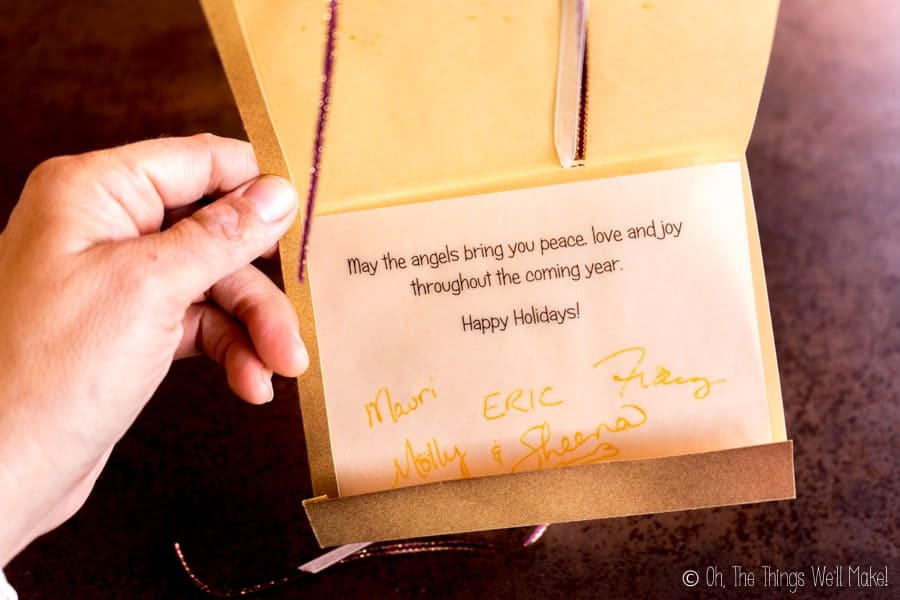 May the angels bring you peace, love and joy
throughout the coming year.
Happy Holidays!
Mauri ERIC Tracy
Molly & Sheena
© Oh, The Things We'll Make!